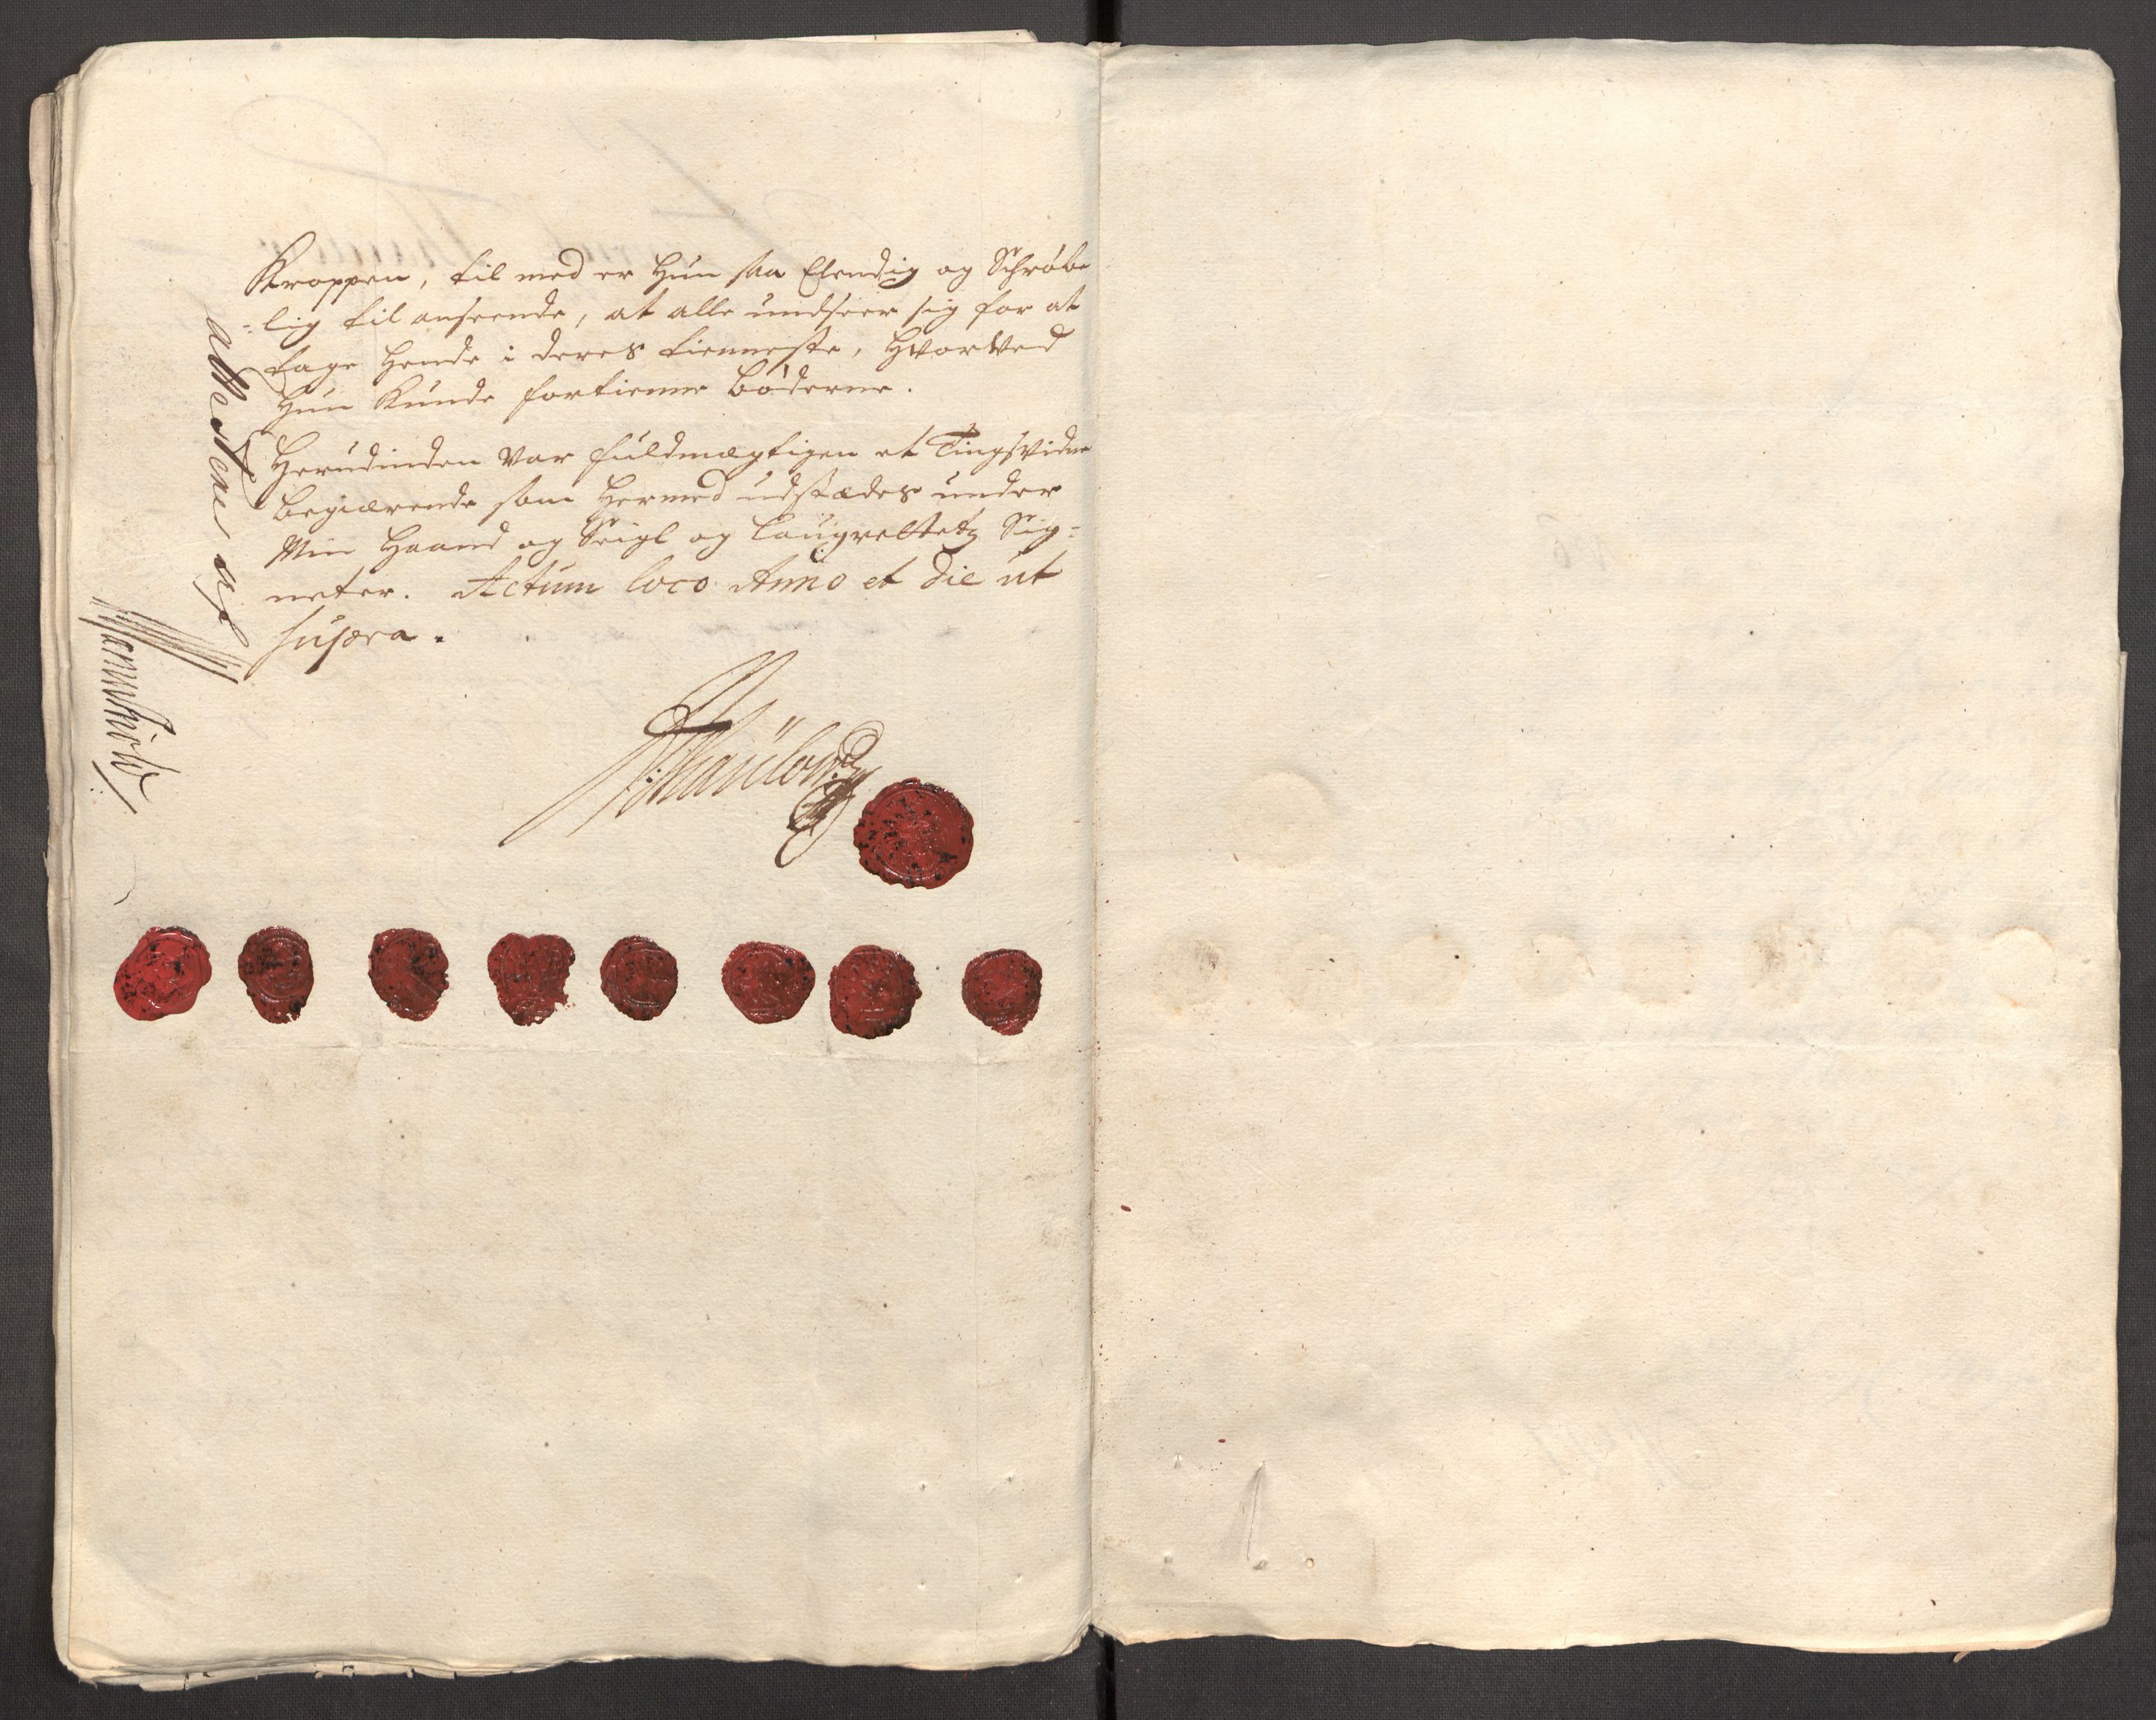 Kroppen, til med er Hun saa Elendig og Schrøbe
=lig til anseende, at alle undseer sig for at
tage Hende i deres tienneste, Hvorved
Hun Kunde fortienne bøderne.
Herudinden var fuldmægtigen et Tingsvidne
begiærende som Hermed udstædes under
Min Haand og Seigl og Laugrettetz Sig=
neter. Actum loco Anno et die ut
supra.
attesterer af